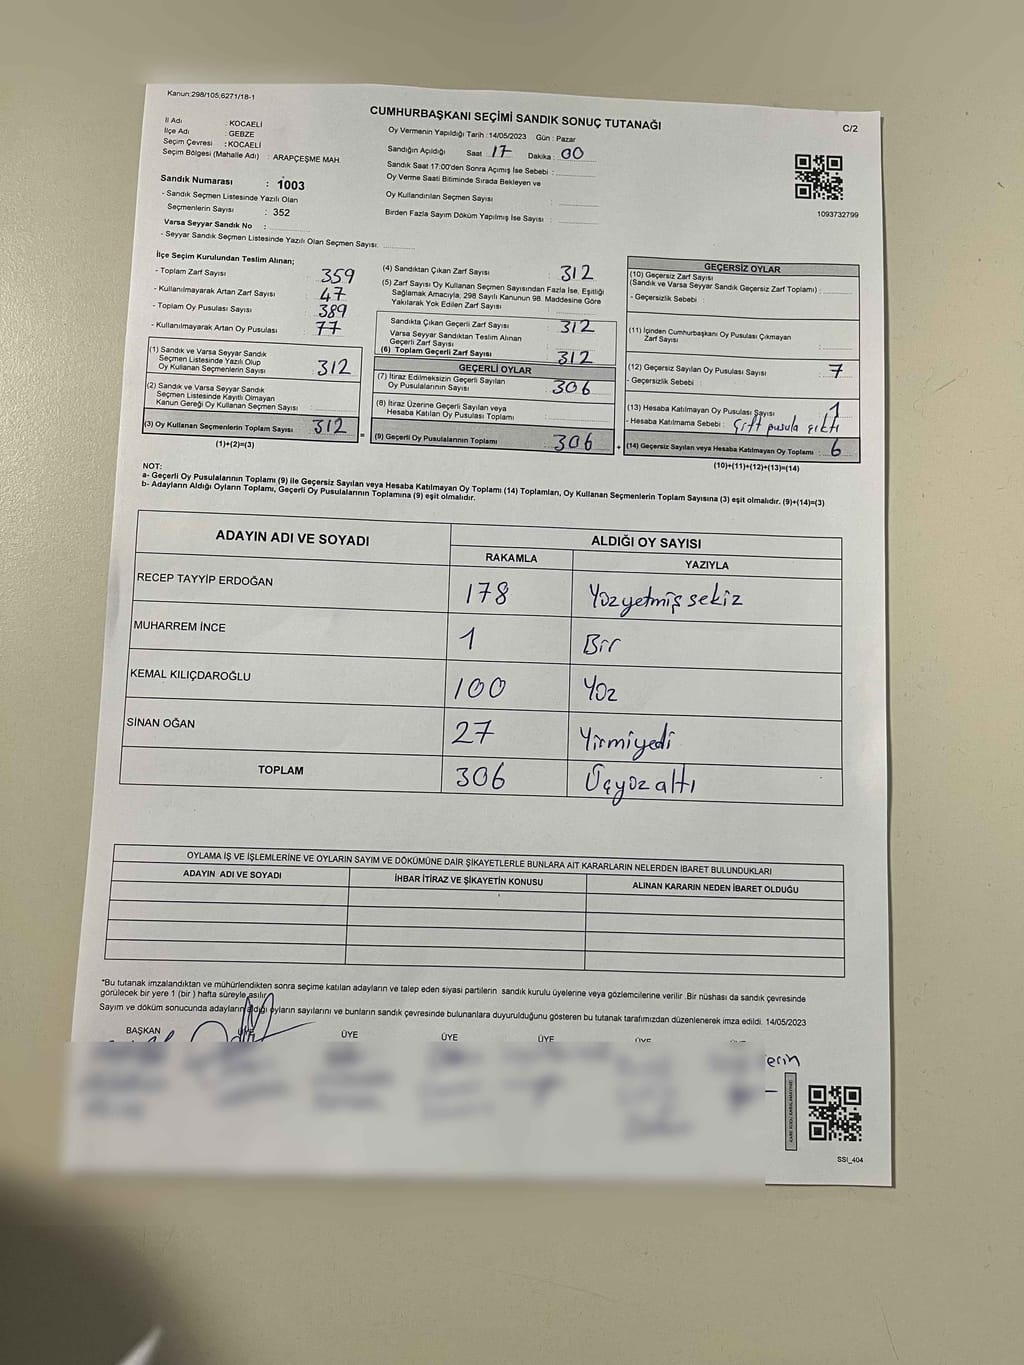 Kanun:298/105,6271/18-1
CUMHURBAŞKANI SEÇİMİ SANDIK SONUÇ TUTANAĞI
C/2
İl Adı : KOCAELİ
İlçe Adı : GEBZE
Seçim Çevresi : KOCAELİ
Seçim Bölgesi (Mahalle Adı) : ARAPÇEŞME MAH.
Sandık Numarası : 1003
- Sandık Seçmen Listesinde Yazılı Olan
Seçmenlerin Sayısı : 352
Varsa Seyyar Sandık No :
- Seyyar Sandık Seçmen Listesinde Yazılı Olan Seçmen Sayısı:
Oy Vermenin Yapıldığı Tarih :14/05/2023 Gün : Pazar
Sandığın Açıldığı Saat : 17 Dakika : 00
Sandık Saat 17:00'den Sonra Açımış İse Sebebi :
Oy Verme Saati Bitiminde Sırada Bekleyen ve
Oy Kullandırılan Seçmen Sayısı :
Birden Fazla Sayım Döküm Yapılmış İse Sayısı :
1093732799
İlçe Seçim Kurulundan Teslim Alınan;
- Toplam Zarf Sayısı : 359
- Kullanılmayarak Artan Zarf Sayısı : 47
- Toplam Oy Pusulası Sayısı : 389
- Kullanılmayarak Artan Oy Pusulası : 77
(1) Sandık ve Varsa Seyyar Sandık
Seçmen Listesinde Yazılı Olup
Oy Kullanan Seçmenlerin Sayısı : 312
(2) Sandık ve Varsa Seyyar Sandık
Seçmen Listesinde Kayıtlı Olmayan
Kanun Gereği Oy Kullanan Seçmen Sayısı :
(3) Oy Kullanan Seçmenlerin Toplam Sayısı : 312
(1)+(2)=(3)
(4) Sandıktan Çıkan Zarf Sayısı : 312
(5) Zarf Sayısı Oy Kullanan Seçmen Sayısından Fazla İse, Eşitliği
Sağlamak Amacıyla; 298 Sayılı Kanunun 98. Maddesine Göre
Yakılarak Yok Edilen Zarf Sayısı :
Sandıkta Çıkan Geçerli Zarf Sayısı : 312
Varsa Seyyar Sandıktan Teslim Alınan
Geçerli Zarf Sayısı :
(6) Toplam Geçerli Zarf Sayısı : 312
GEÇERLİ OYLAR
(7) İtiraz Edilmeksizin Geçerli Sayılan
Oy Pusulalarının Sayısı : 306
(8) İtiraz Üzerine Geçerli Sayılan veya
Hesaba Katılan Oy Pusulası Toplamı :
= (9) Geçerli Oy Pusulalarının Toplamı : 306 +
GEÇERSİZ OYLAR
(10) Geçersiz Zarf Sayısı
(Sandık ve Varsa Seyyar Sandık Geçersiz Zarf Toplamı) :
- Geçersizlik Sebebi :
(11) İçinden Cumhurbaşkanı Oy Pusulası Çıkmayan
Zarf Sayısı :
(12) Geçersiz Sayılan Oy Pusulası Sayısı : 7
- Geçersizlik Sebebi :
(13) Hesaba Katılmayan Oy Pusulası Sayısı : 1
- Hesaba Katılmama Sebebi : Çift pusula çıktı
(14) Geçersiz Sayılan veya Hesaba Katılmayan Oy Toplamı : 6
(10)+(11)+(12)+(13)=(14)
NOT:
a- Geçerli Oy Pusulalarının Toplamı (9) ile Geçersiz Sayılan veya Hesaba Katılmayan Oy Toplamı (14) Toplamları, Oy Kullanan Seçmenlerin Toplam Sayısına (3) eşit olmalıdır. (9)+(14)=(3)
b- Adayların Aldığı Oyların Toplamı, Geçerli Oy Pusulalarının Toplamına (9) eşit olmalıdır.
ADAYIN ADI VE SOYADI
ALDIĞI OY SAYISI
RAKAMLA YAZIYLA
RECEP TAYYİP ERDOĞAN 178 Yüzyetmiş sekiz
MUHARREM İNCE 1 Bir
KEMAL KILIÇDAROĞLU 100 Yüz
SİNAN OĞAN 27 Yirmiyedi
TOPLAM 306 Üçyüz altı
OYLAMA İŞ VE İŞLEMLERİNE VE OYLARIN SAYIM VE DÖKÜMÜNE DAİR ŞİKAYETLERLE BUNLARA AİT KARARLARIN NELERDEN İBARET BULUNDUKLARI
ADAYIN ADI VE SOYADI İHBAR İTİRAZ VE ŞİKAYETİN KONUSU ALINAN KARARIN NEDEN İBARET OLDUĞU
*Bu tutanak imzalandıktan ve mühürlendikten sonra seçime katılan adayların ve talep eden siyasi partilerin sandık kurulu üyelerine veya gözlemcilerine verilir .Bir nüshası da sandık çevresinde
görülecek bir yere 1 (bir ) hafta süreyle asılır.
Sayım ve döküm sonucunda adayların aldığı oyların sayılarını ve bunların sandık çevresinde bulunanlara duyurulduğunu gösteren bu tutanak tarafımızdan düzenlenerek imza edildi. 14/05/2023
BAŞKAN ÜYE ÜYE ÜYE ÜYE ÜYE
erin
SSI_404